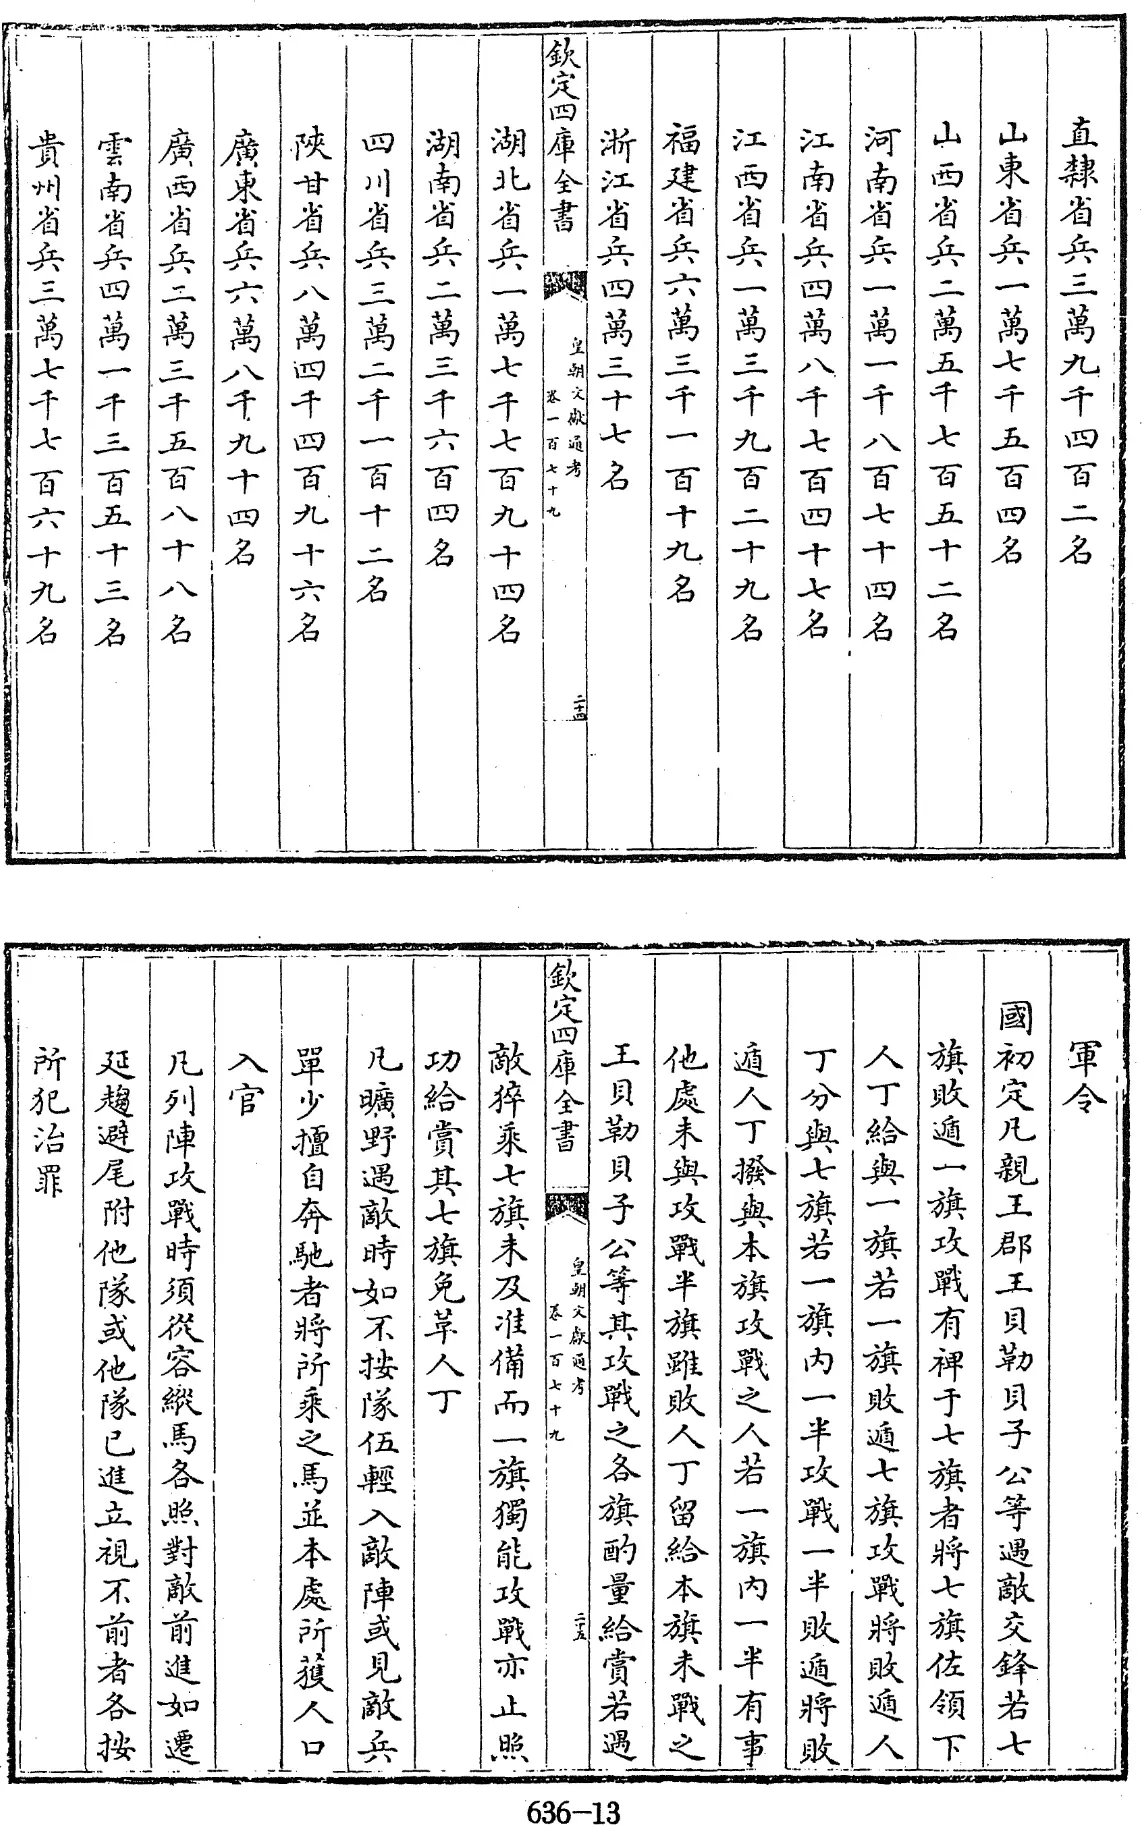 直隸省兵三萬九千四百二名
山東省兵一萬七千五百四名
山西省兵二萬五千七百五十二名
河南省兵一萬一千八百七十四名
江南省兵四萬八千七百四十七名
江西省兵一萬三千九百二十九名
福建省兵六萬三千一百十九名
浙江省兵四萬三十七名
欽定四庫全書
皇朝文獻通考
卷一百七十九
二十四
湖北省兵一萬七千七百九十四名
湖南省兵二萬三千六百四名
四川省兵三萬二千一百十二名
陝甘省兵八萬四千四百九十六名
廣東省兵六萬八千九十四名
廣西省兵二萬三千五百八十八名
雲南省兵四萬一千三百五十三名
貴州省兵三萬七千七百六十九名
軍令
國初定凡親王郡王貝勒貝子公等遇敵交鋒若七
旗敗遁一旗攻戰有裨于七旗者將七旗佐領下
人丁給與一旗若一旗敗遁七旗攻戰將敗遁人
丁分與七旗若一旗內一半攻戰一半敗遁將敗
遁人丁撥與本旗攻戰之人若一旗內一半有事
他處未與攻戰半旗雖敗人丁留給本旗未戰之
王貝勒貝子公等其攻戰之各旗酌量給賞若遇
欽定四庫全書
皇朝文獻通考
卷一百七十九
二十五
敵猝乘七旗未及准備而一旗獨能攻戰亦止照
功給賞其七旗免革人丁
凡曠野遇敵時如不按隊伍輕入敵陣或見敵兵
單少擅自奔馳者將所乘之馬並本處所獲人口
入官
凡列陣攻戰時須從容縱馬各照對敵前進如遷
延趨避尾附他隊或他隊已進立視不前者各按
所犯治罪
636-13